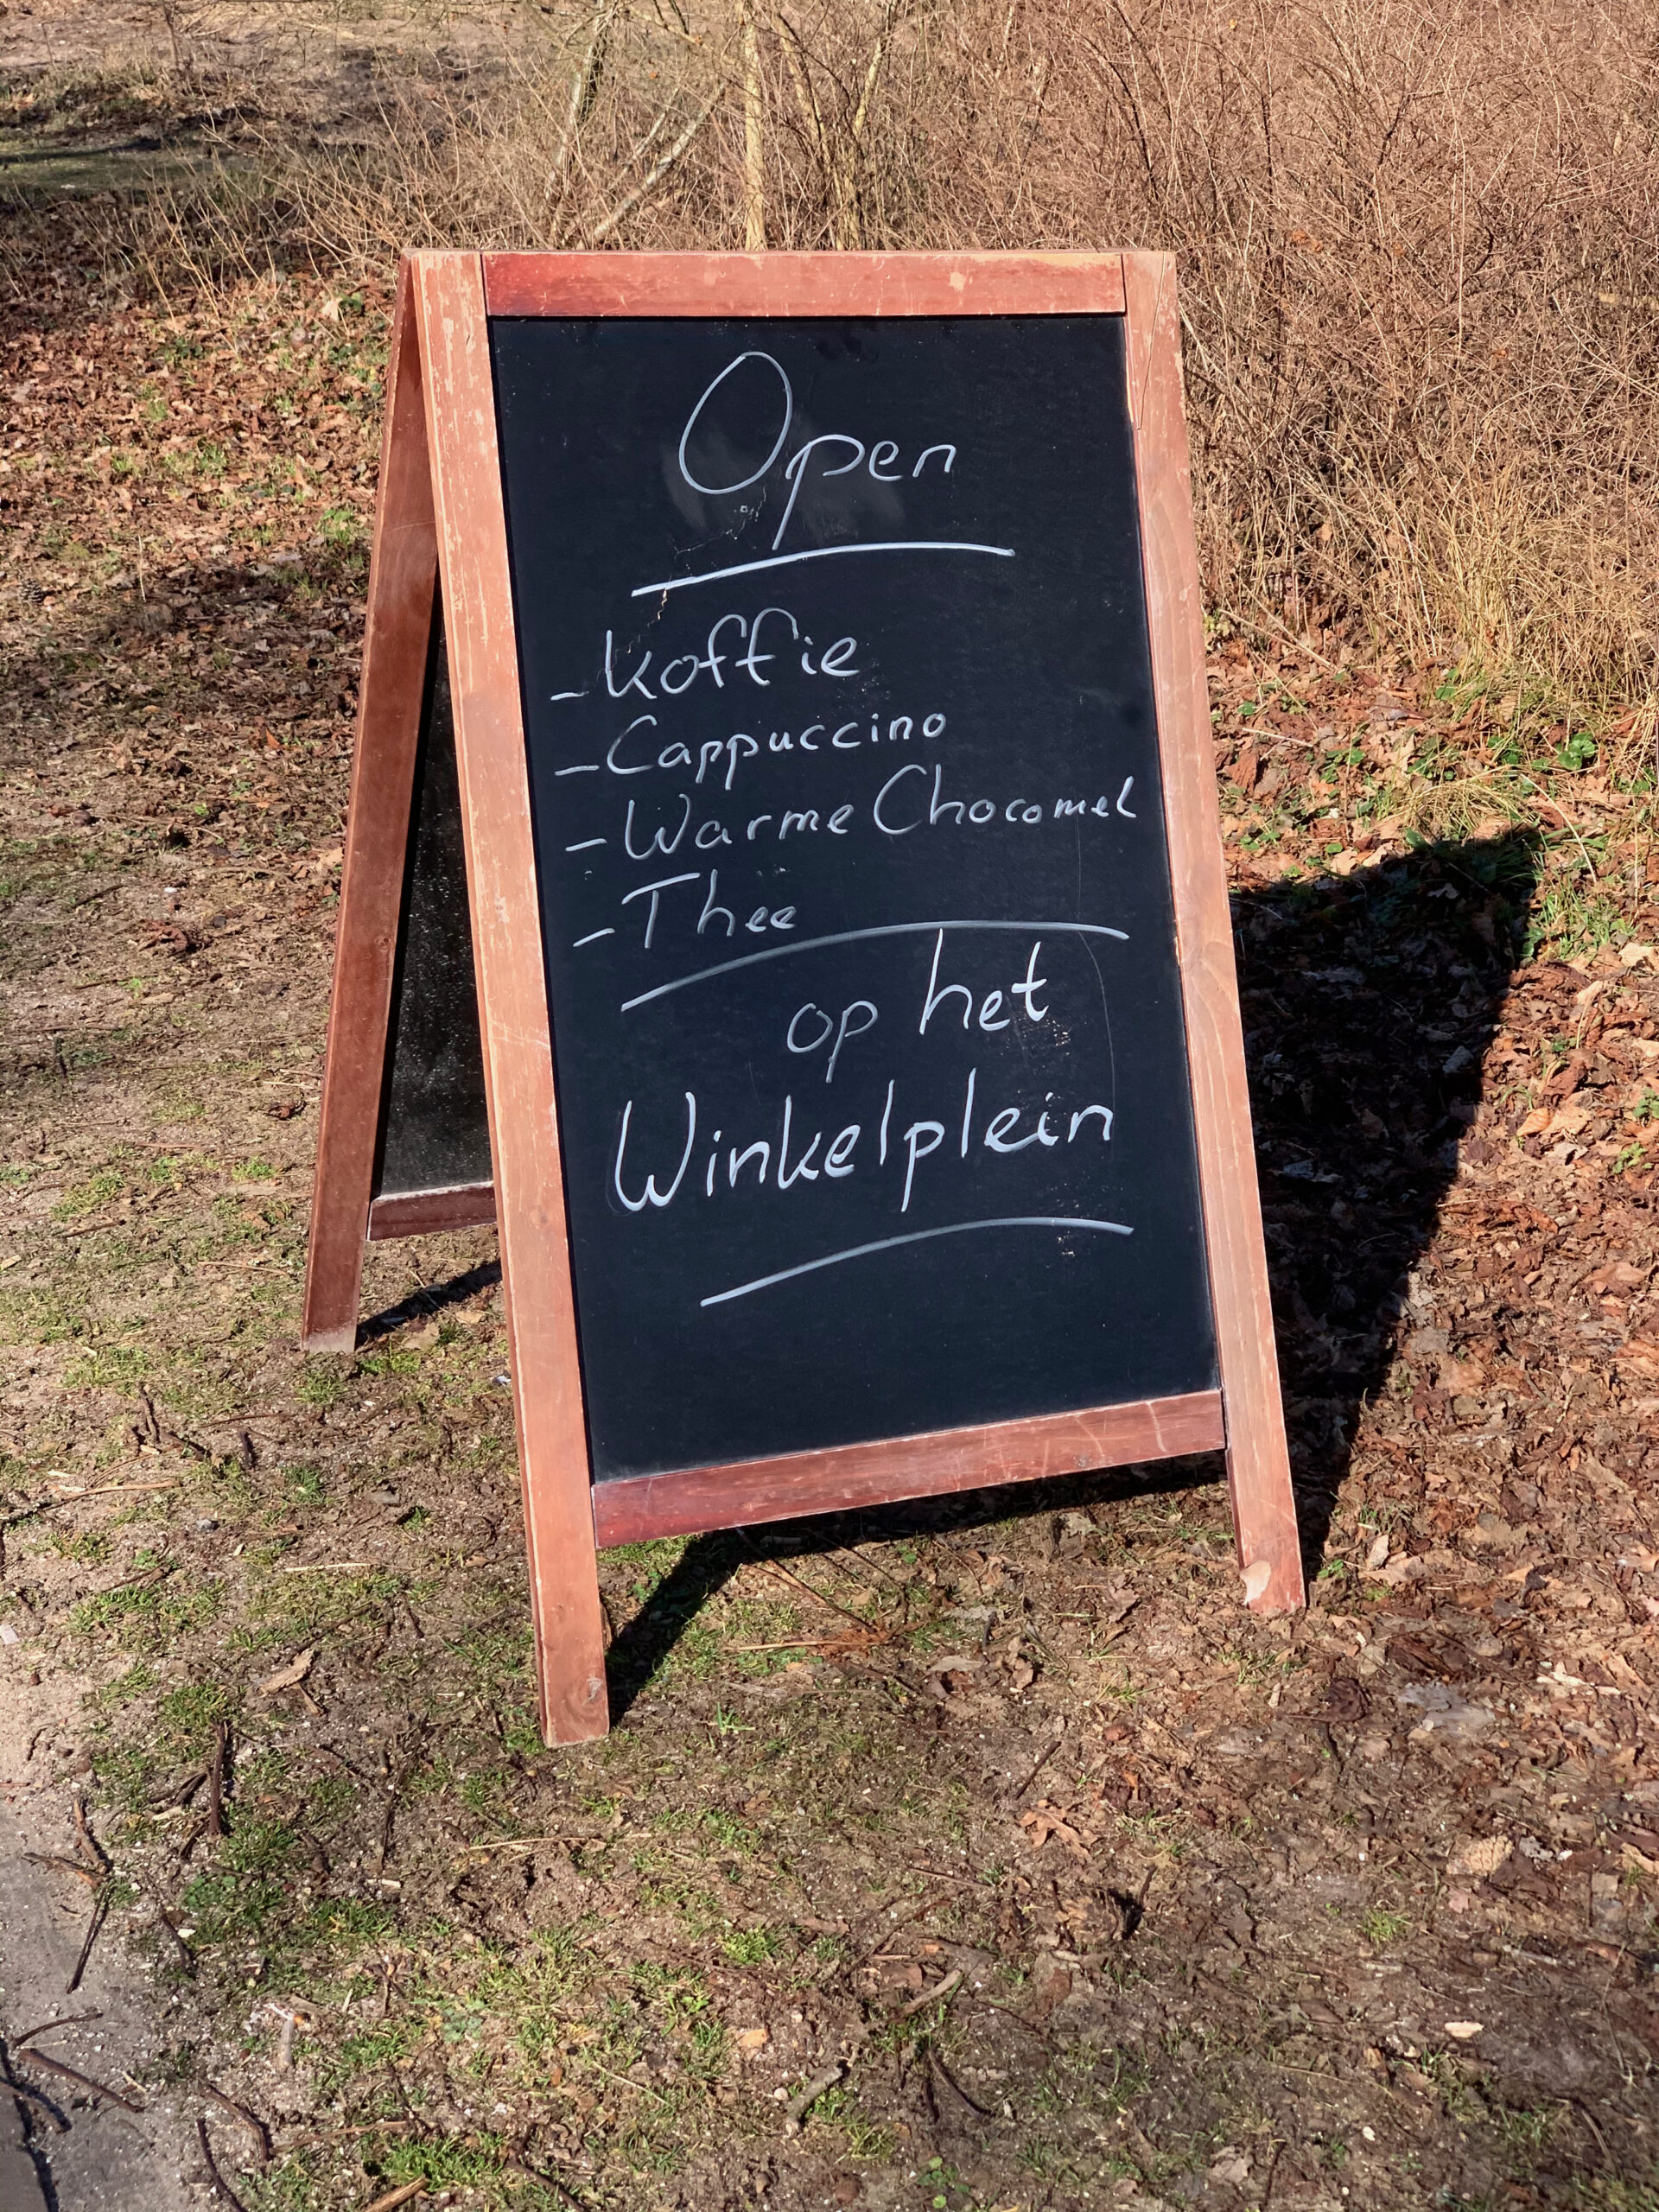 Open
- Koffie
- Cappuccino
- Warme Chocomel
- Thee
op het
Winkelplein